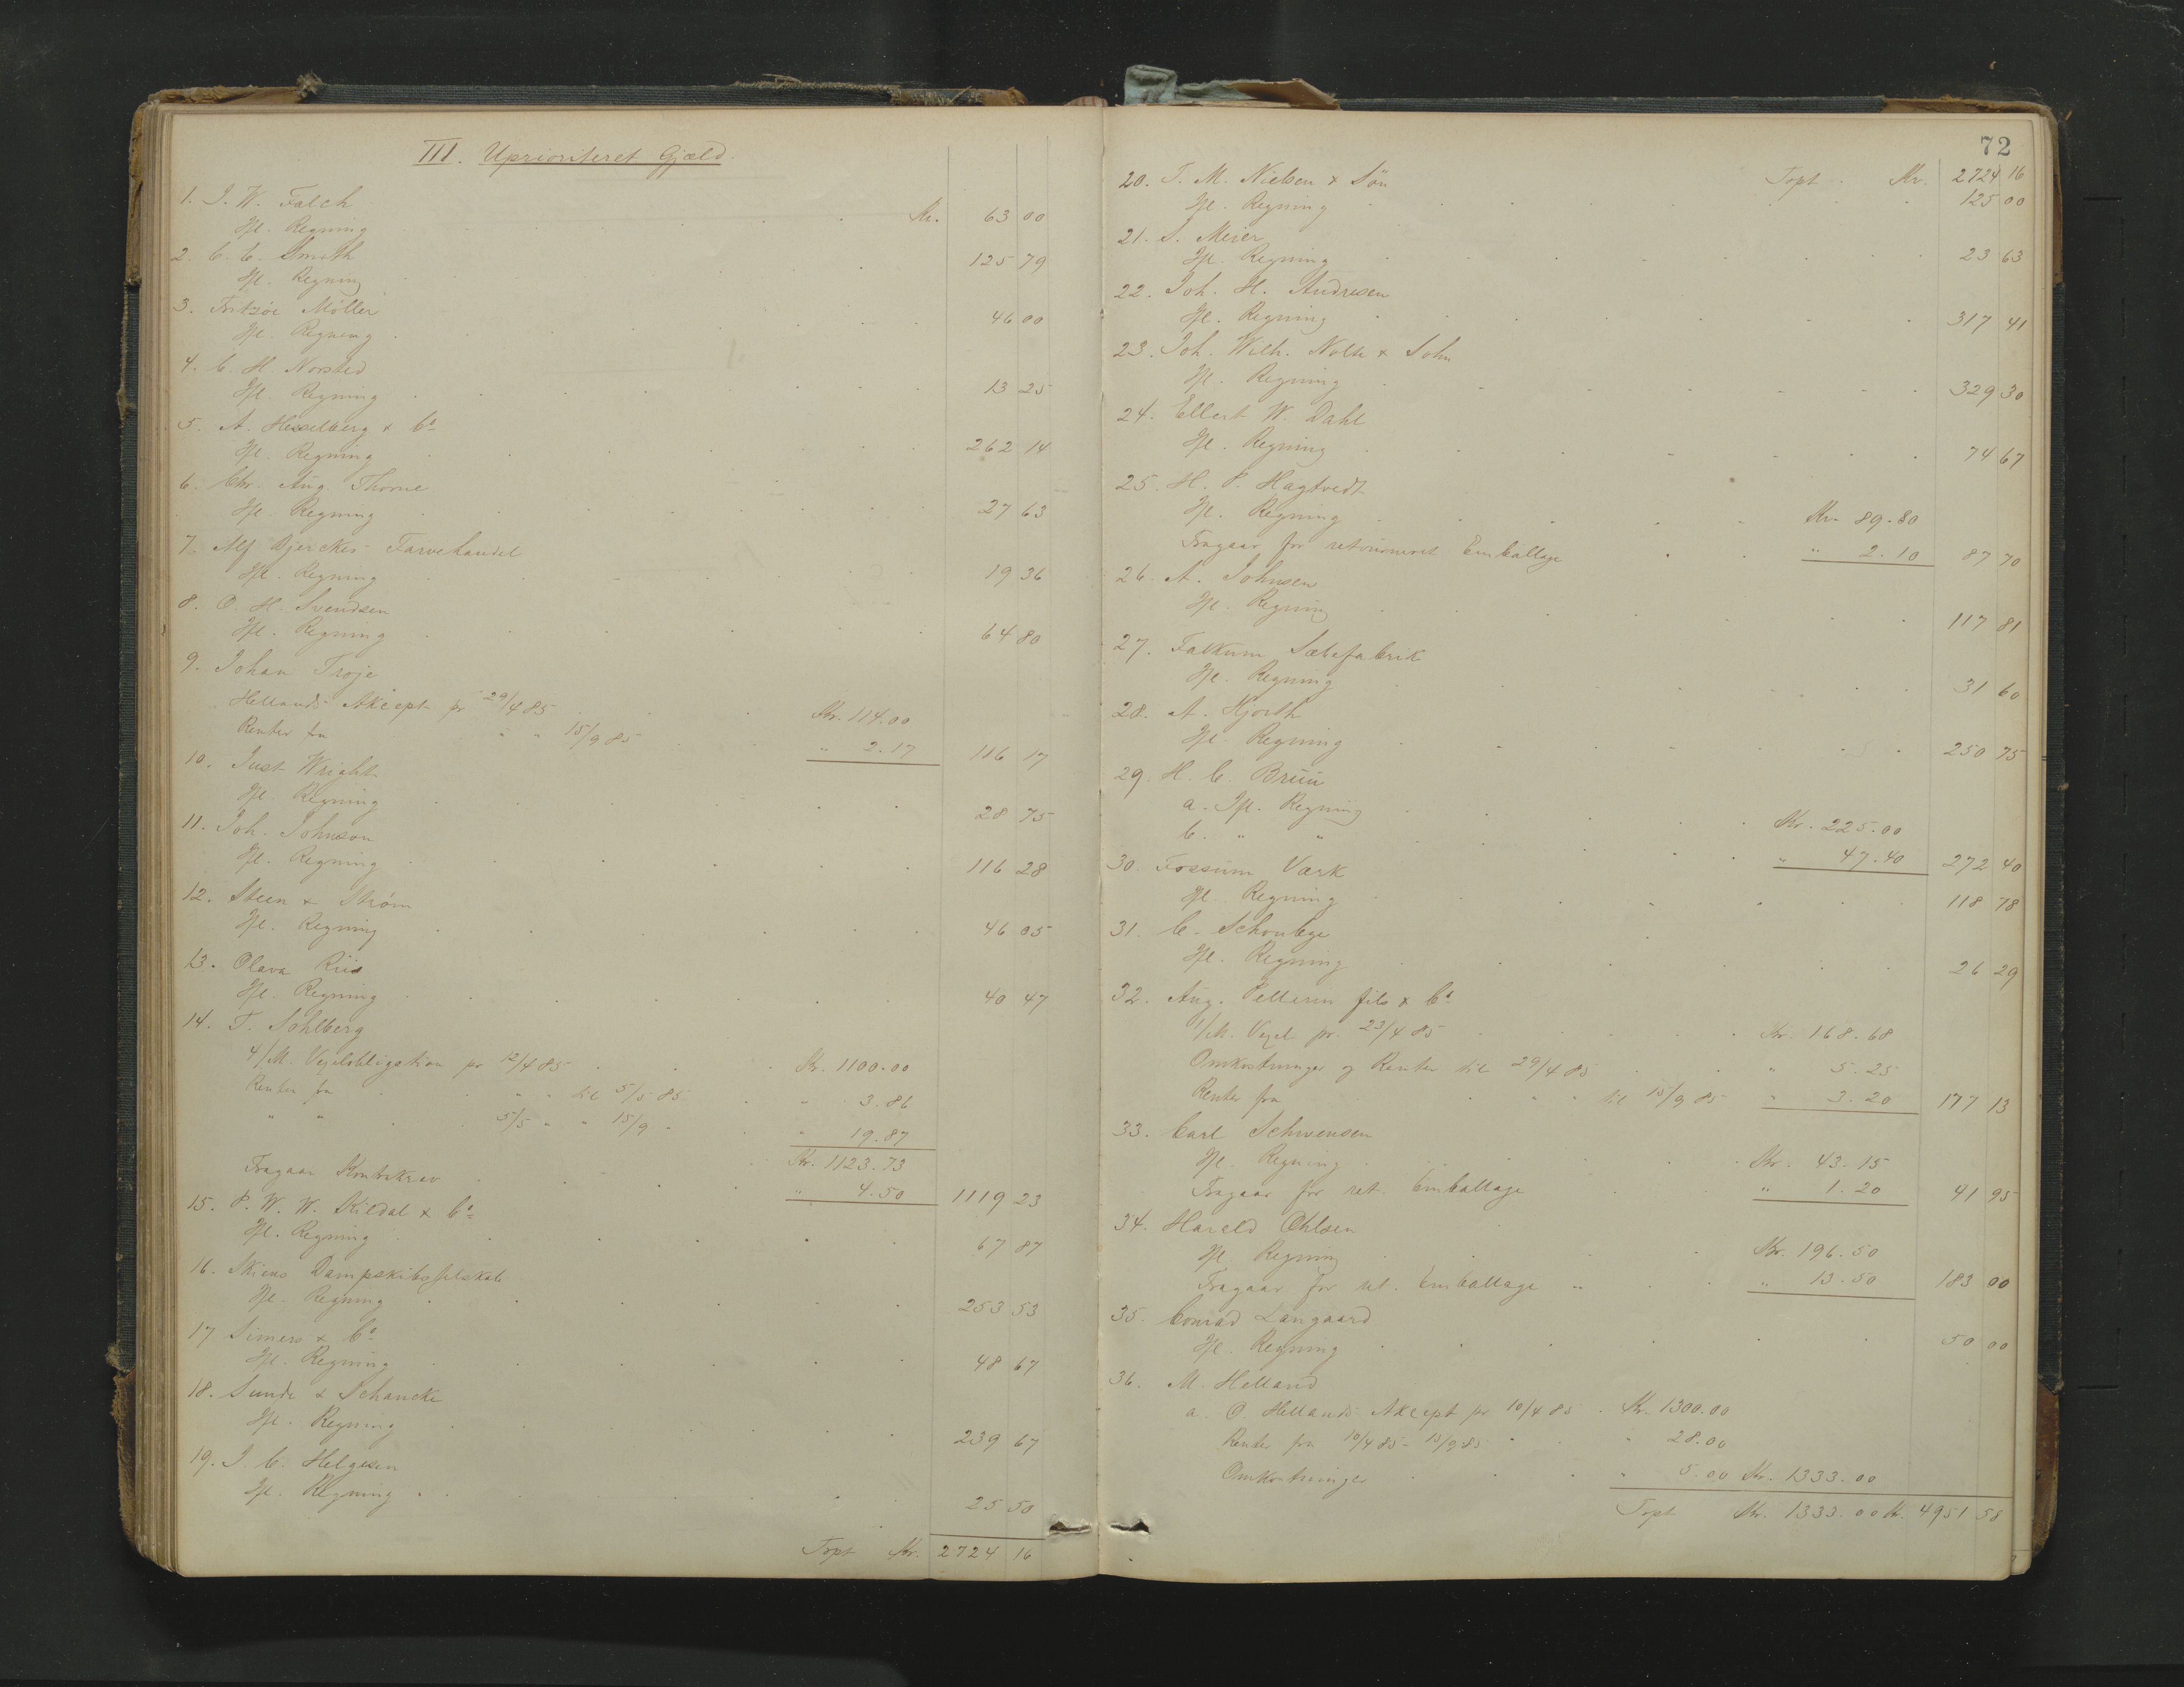 III. Uprioriteret Gjæld.
1. J. W. Falch
Ifl. Regning . . . Kr. 63 00
2. C. C. Smith
Ifl. Regning 125 79
3. Fritzöe Møller
Ifl. Regning 46 00
4. C. H. Norsted
Ifl. Regning 13 25
5. A. Hesselberg & Co
Ifl. Regning 262 14
6. Chr. Aug. Thorne
Ifl. Regning 27 63
7. Alf Bjerckes Farvehandel
Ifl. Regning 19 36
8. O. H. Svendsen
Ifl. Regning 64 80
9. Johan Troje
Hellands Akcept pr 29/4 85 Kr. 114.00
Renter fra " " 15/9 85 " 2.17 116 17
10. Just Wright
Ifl. Regning 28 75
11. Joh. Johnson
Ifl. Regning 116 28
12. Steen & Strøm
Ifl. Regning 46 05
13. Olava Riis
Ifl. Regning 40 47
14. T. Sohlberg
4/M. Vexelobligation pr 12/4 85 Kr. 1100.00
Renter fra " " til 5/5 85 " 3.86
" " 5/5 " " 15/9 " " 19.87
Kr. 1123.73
Fragaar Kontrakrav " 4.50 1119 23
15. P. W. W. Kildal & Co
Ifl. Regning 67 87
16. Skiens Dampskibsselskab
Ifl. Regning 253 53
17 Simers & Co
Ifl. Regning 48 67
18. Sunde & Schancke
Ifl. Regning 239 67
19. J. C. Helgesen
Ifl. Regning 25 50
Trpt Kr. 2724 16
72
Trpt . Kr. 2724 16
20. T. M. Nielsen & Sön
Ifl. Regning 125 00
21. S. Meier
Ifl. Regning 23 63
22. Joh. H. Andresen
Ifl. Regning 317 41
23. Joh. Wilh. Nolte & Sohn
Ifl. Regning 329 30
24. Ellert W. Dahl
Ifl. Regning 74 67
25. H. P. Hagtvedt
Ifl. Regning Kr. 89.80
Fragaar for retourneret Emballage " 2.10 87 70
26. A. Johnsen
Ifl. Regning 117 81
27. Falkum Sæbefabrik
Ifl. Regning 31 60
28. A. Hjorth
Ifl. Regning 250 75
29. H. C. Bruu
a. Ifl. Regning Kr. 225.00
b. " " " 47.40 272 40
30. Fossum Værk
Ifl. Regning 118 78
31. C. Schoubye
Ifl. Regning 26 29
32. Aug. Pellerin fils & Co
1/M. Vexel pr. 23/4 85 Kr. 168.68
Omkostninger og Renter til 29/4 85 " 5.25
Renter fra " " til 15/9 85 " 3.20 177 13
33. Carl Schwensen
Ifl. Regning Kr. 43.15
Fragaar for ret. Emballage " 1.20 41 95
34. Harald Ohlsen
Ifl. Regning Kr. 196.50
Fragaar for ret. Emballage " 13.50 183 00
35. Conrad Langaard
Ifl. Regning 50 00
36. M. Helland
a. O. Hellands Akcept pr 10/4 85 . Kr. 1300.00
Renter fra 10/4 85 - 15/9 85 " 28.00
Omkostninger " 5.00 Kr. 1333.00
Trpt Kr. 1333.00 Kr. 4951 58